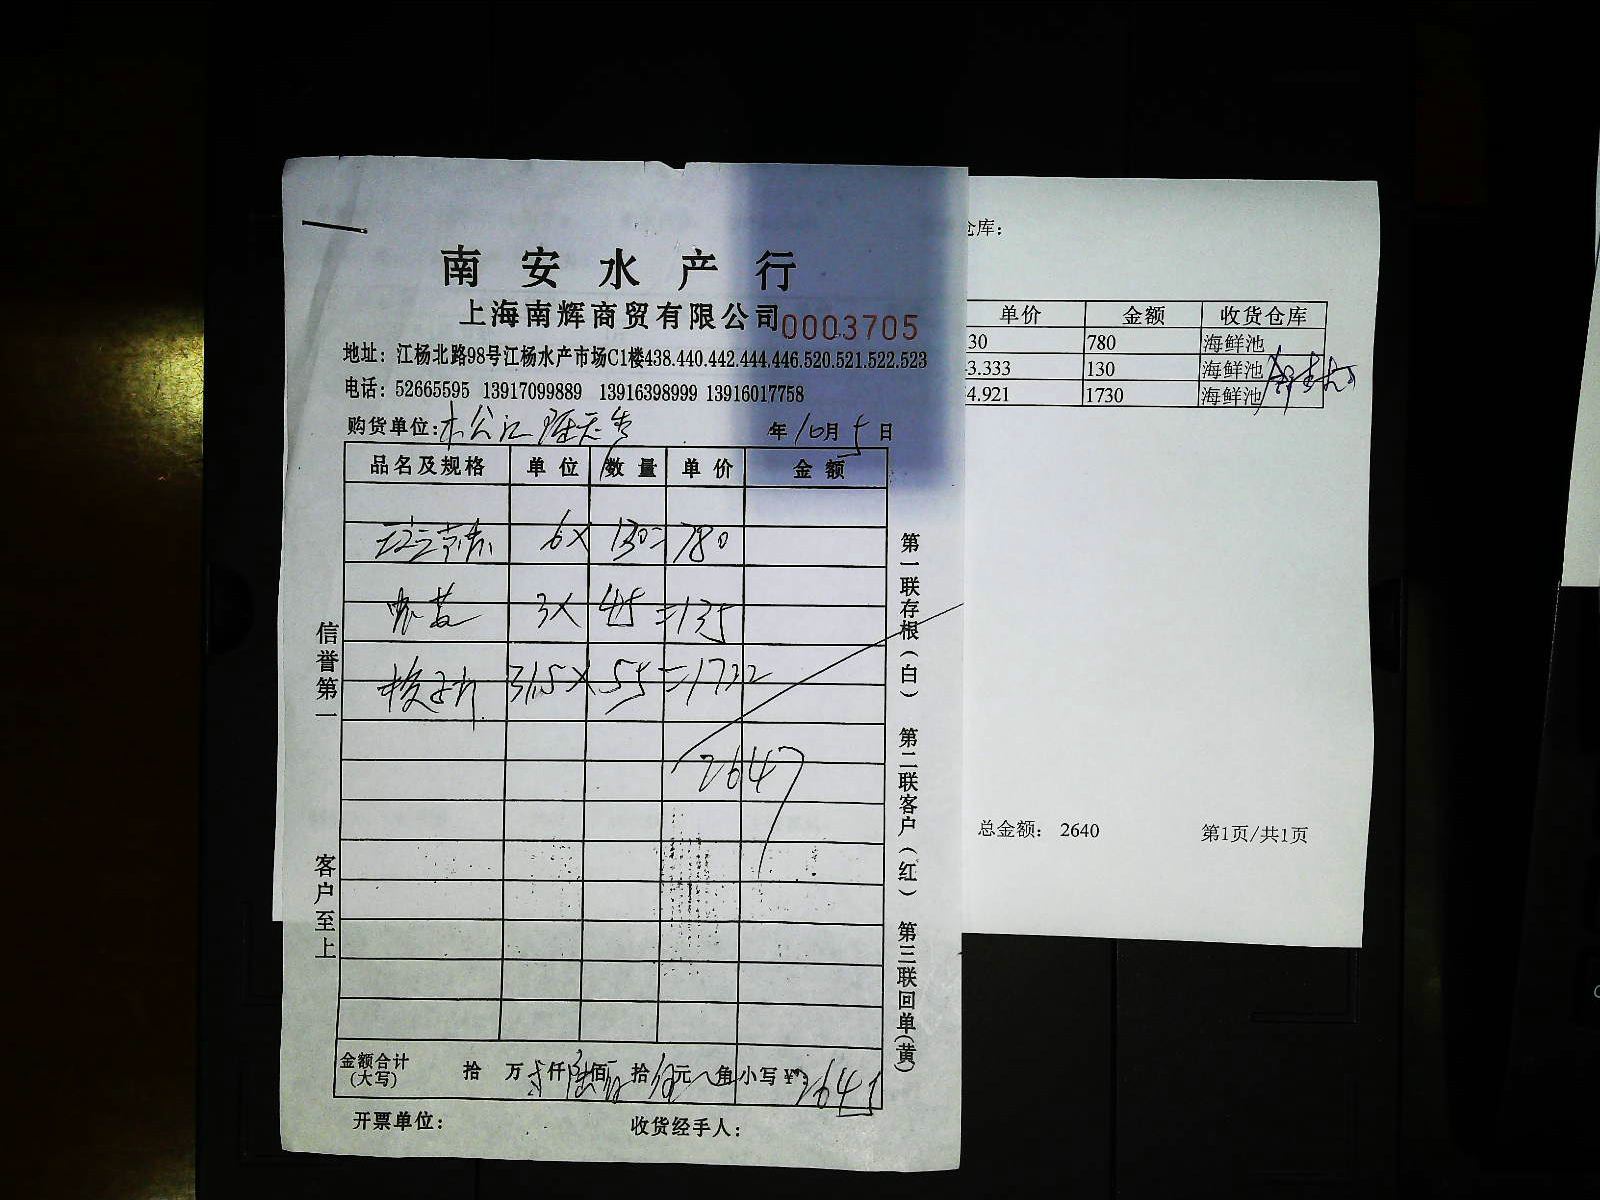 南安水产行
上海南辉商贸有限公司 0003705
地址：江杨北路98号江杨水产市场C1楼438.440.442.444.446.520.521.522.523
电话：52665595 13917099889 13916398999 13916017758
购货单位： 年10月5日
品名及规格 单位 数量 单价 金额
6× 130=780
3× 45=135
31.5× 55=1732
2647
金额合计(大写) 拾 万 仟 佰 拾 元 角 小写¥: 264
开票单位： 收货经手人：
信誉第一
客户至上
第一联存根(白) 第二联客户(红) 第三联回单(黄)
仓库：
单价 金额 收货仓库
30 780 海鲜池
3.333 130 海鲜池
4.921 1730 海鲜池
总金额： 2640 第1页/共1页